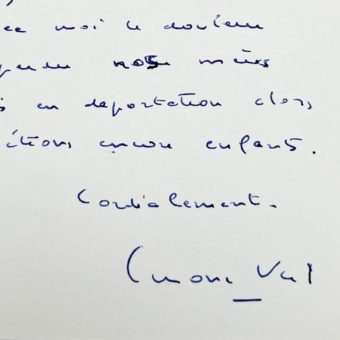 moi la douleur
perdu nos mères
en deportation alors
étions encore enfants.
Cordialement.
Simone Veil